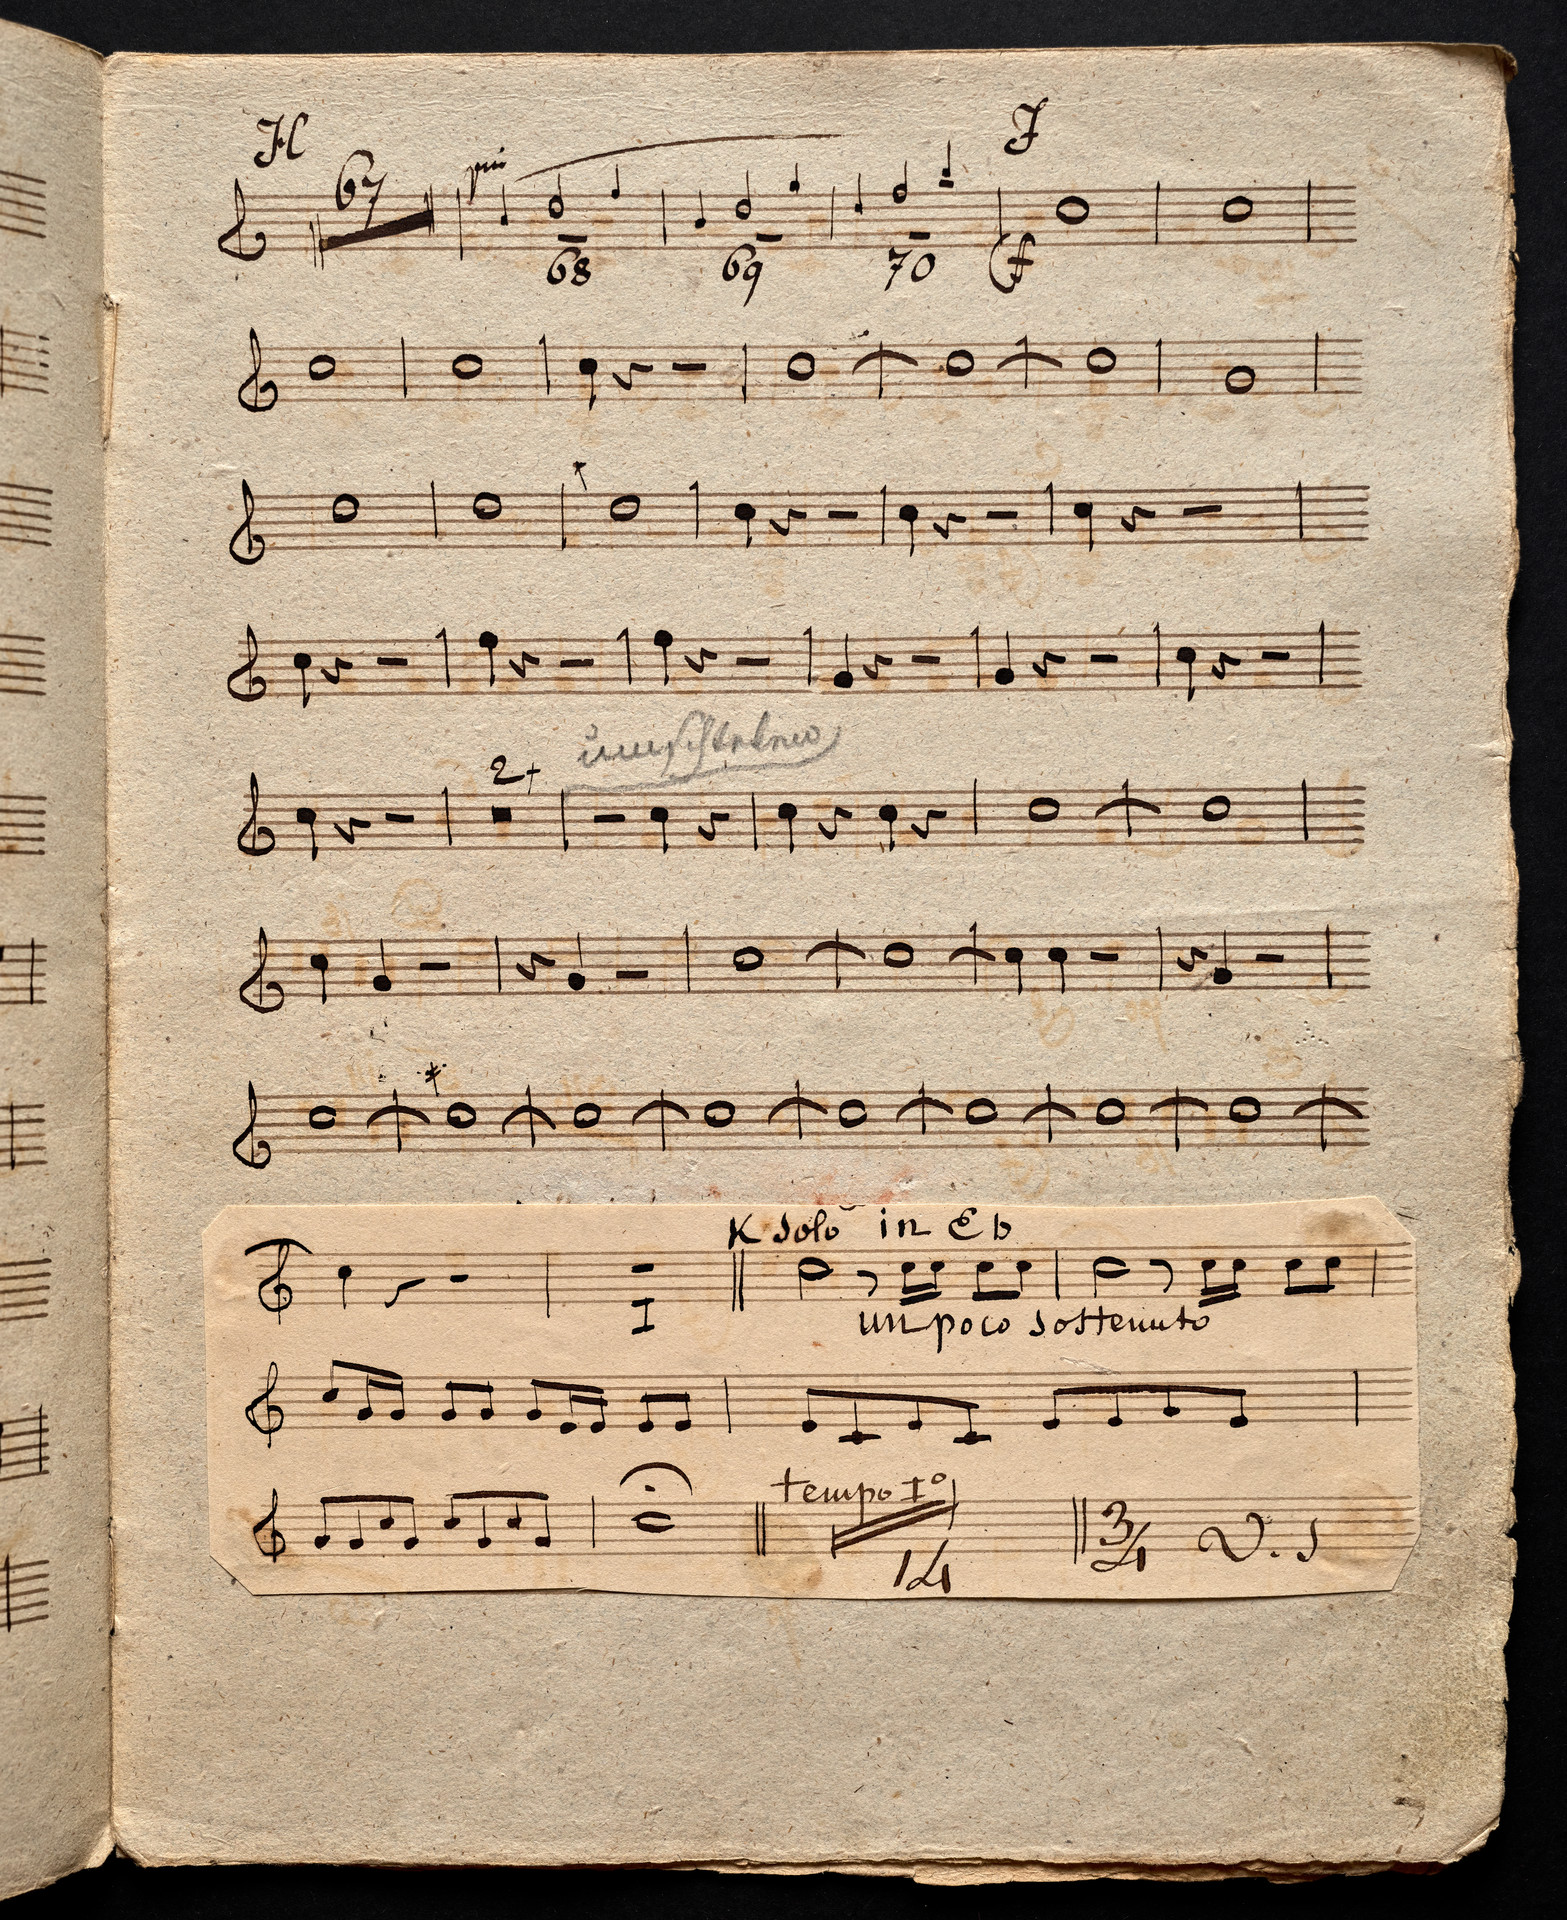 H J
67
68 69 70 f
2
K solo in Eb
I
un poco sostenuto
tempo Iº
14 3/4 V. S